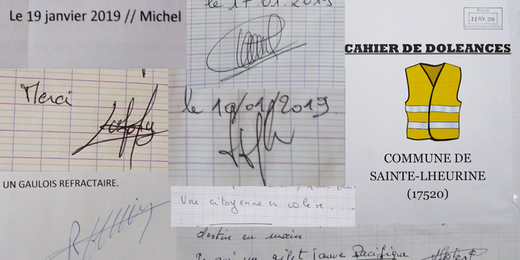 Le 19 janvier 2019 // Michel
Merci
UN GAULOIS REFRACTAIRE.
le 17.01.2019
le 19/01/2019
Une citoyenne en colère....
destin en main
gilet jaune Pacifique
CAHIER DE DOLEANCES
COMMUNE DE
SAINTE-LHEURINE
(17520)